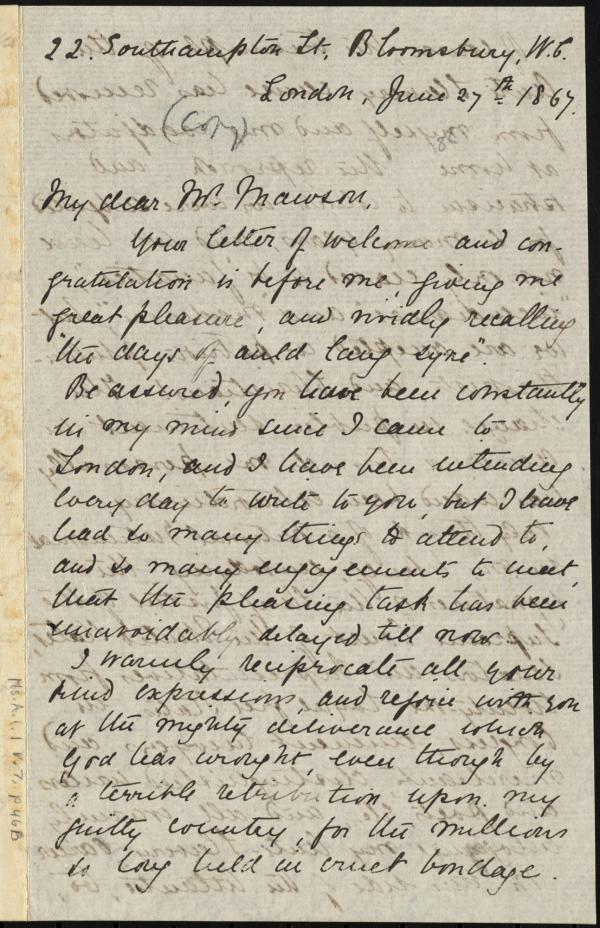 22. Southampton St, Bloomsbury, W.C.
London, June 27th 1867.
(Copy)
My dear Mr. Mawson,
Your letter of welcome and con-
gratulation is before me, giving me
great pleasure, and vividly recalling
"the days of auld lang syne".
Be assured, you have been constantly
in my mind since I came to
London, and I have been intending
every day to write to you, but I have
had so many things to attend to,
and so many engagements to meet,
that the pleasing task has been
unavoidably delayed till now.
I warmly reciprocate all your
kind expressions, and rejoice with you
at the mighty deliverance which
God has wrought, even though by
a terrible retribution upon my
guilty country, for the millions
so long held in cruel bondage.
Ms. A. 1. 1 v. 7, p. 46B